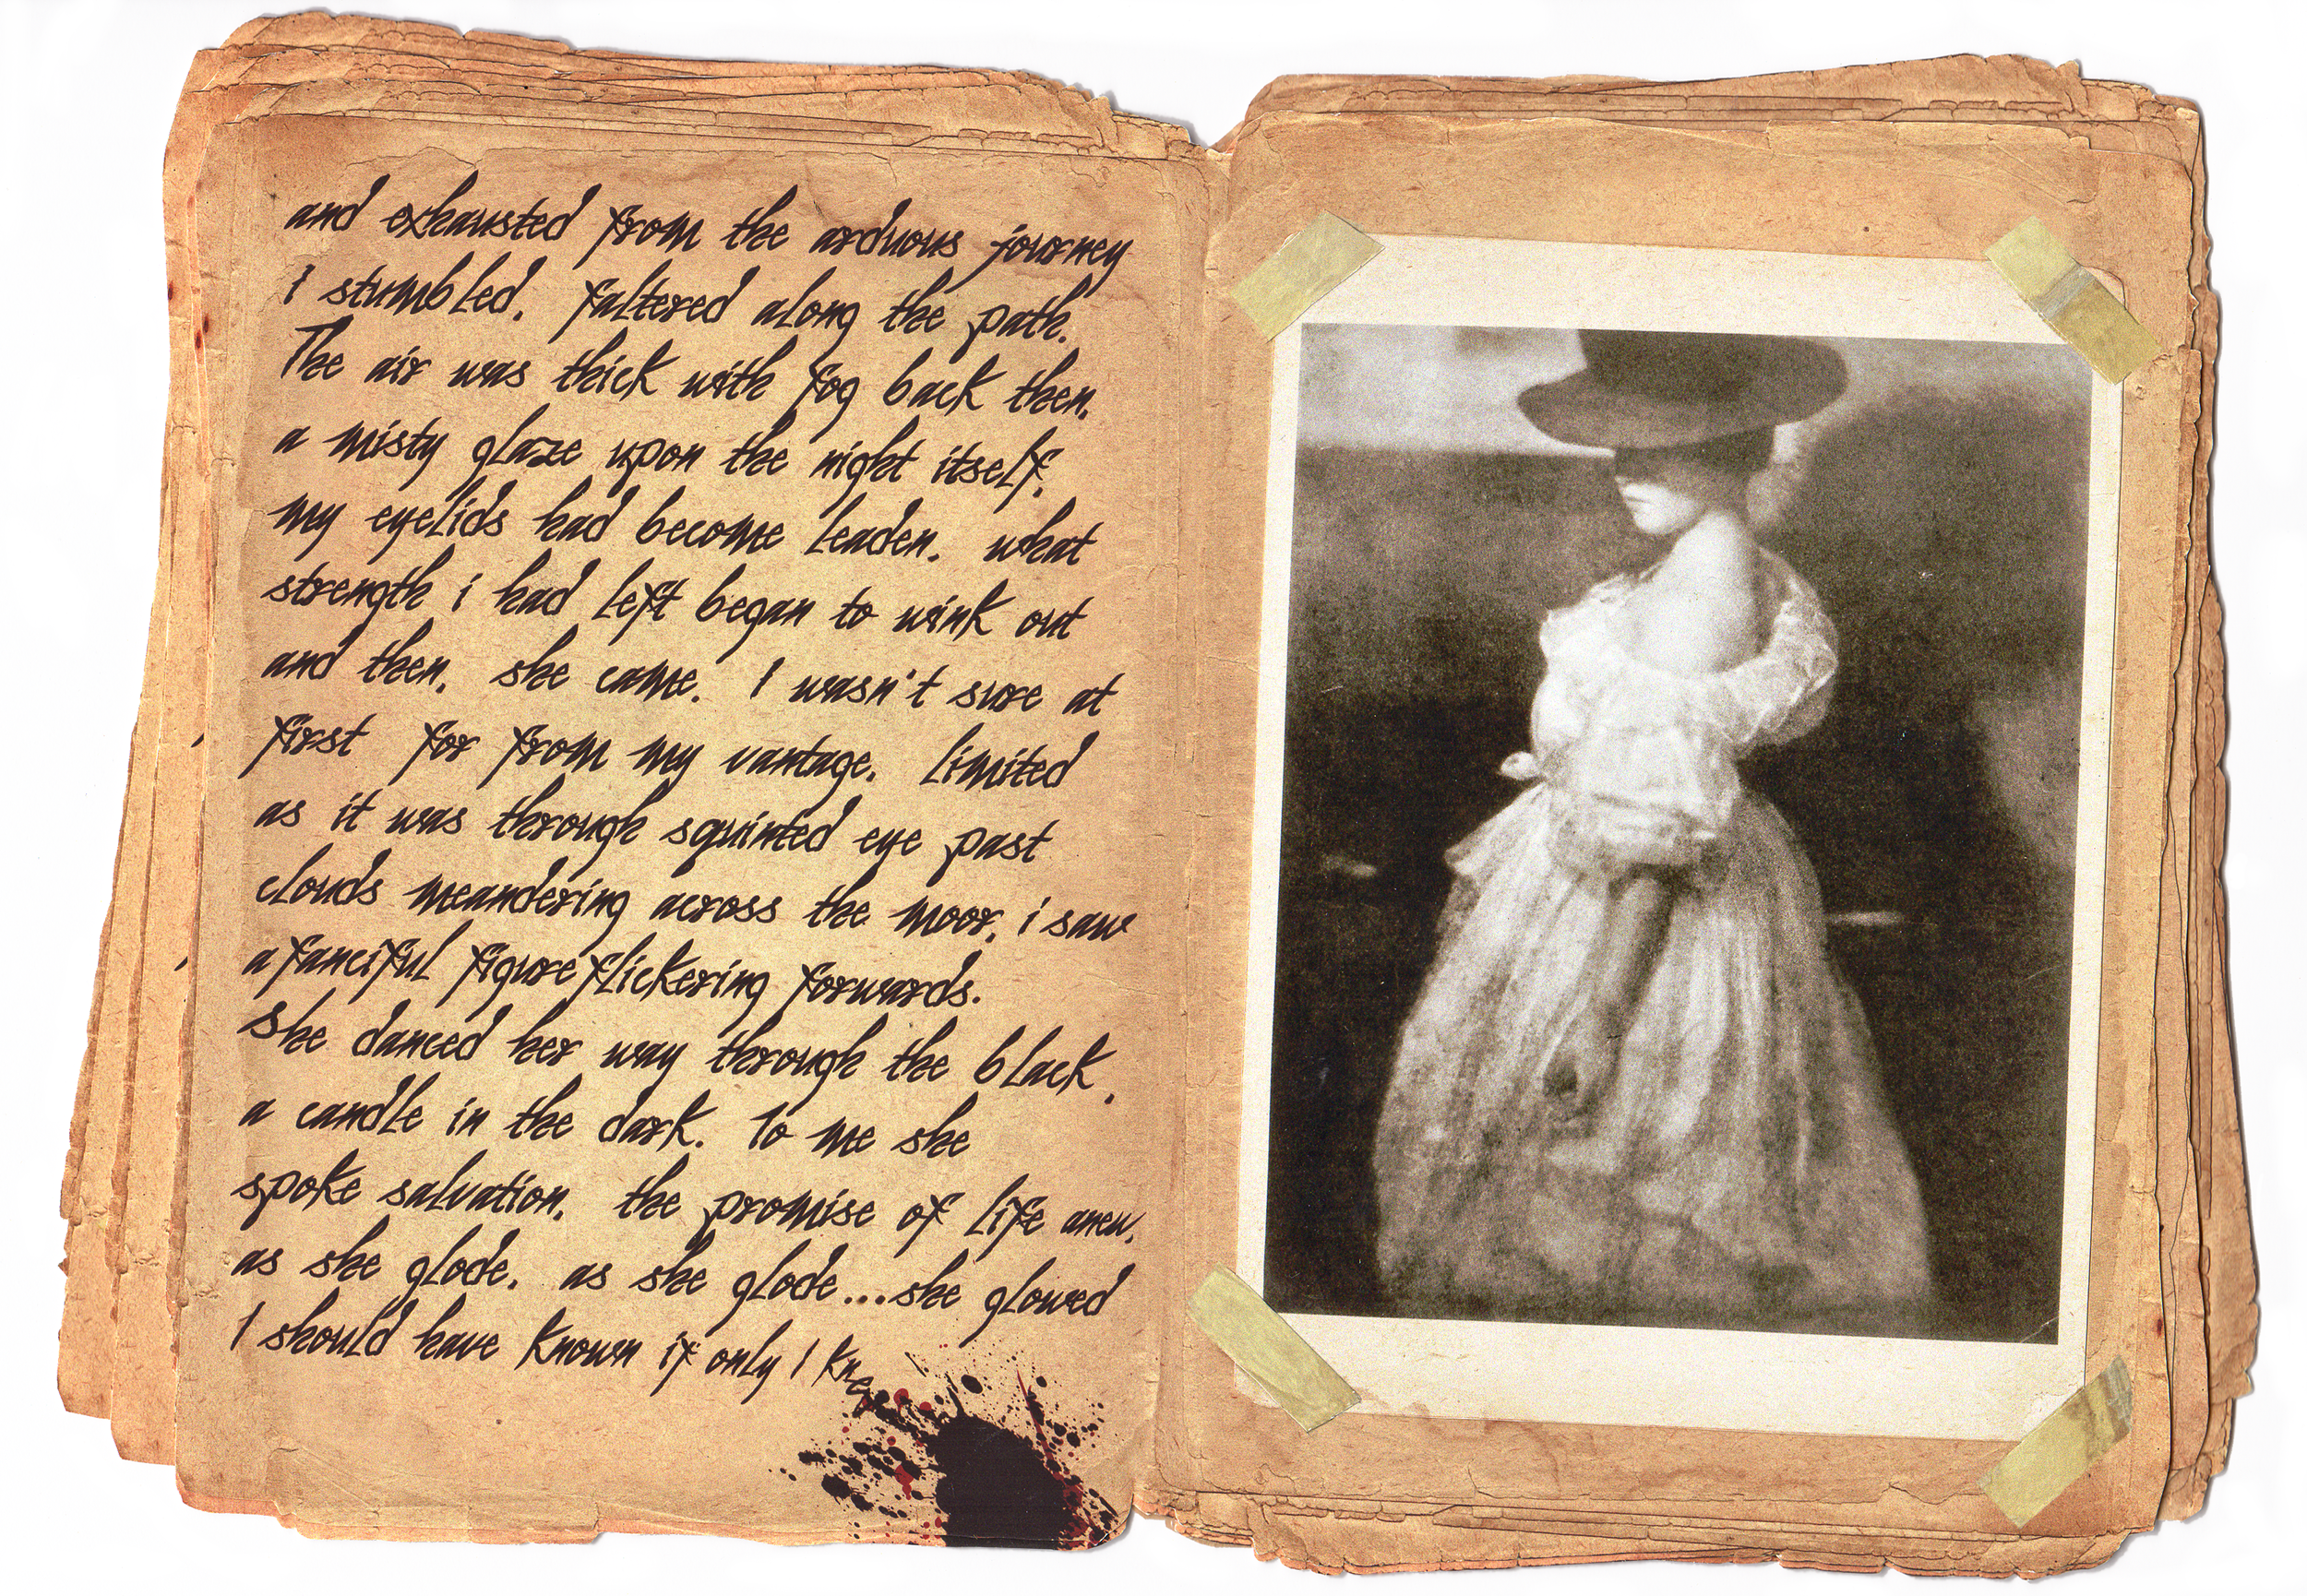 and exhausted from the arduous journey
I stumbled, faltered along the path.
The air was thick with fog back then,
a misty glaze upon the night itself,
my eyelids had become leaden, what
strength i had left began to wink out
and then, she came. I wasn't sure at
first for from my vantage, limited
as it was through squinted eye past
clouds meandering across the moor, i saw
a fanciful figure flickering forwards.
She danced her way through the black,
a candle in the dark. To me she
spoke salvation, the promise of life anew,
as she glode, as she glode...she glowed
I should have known if only I kne